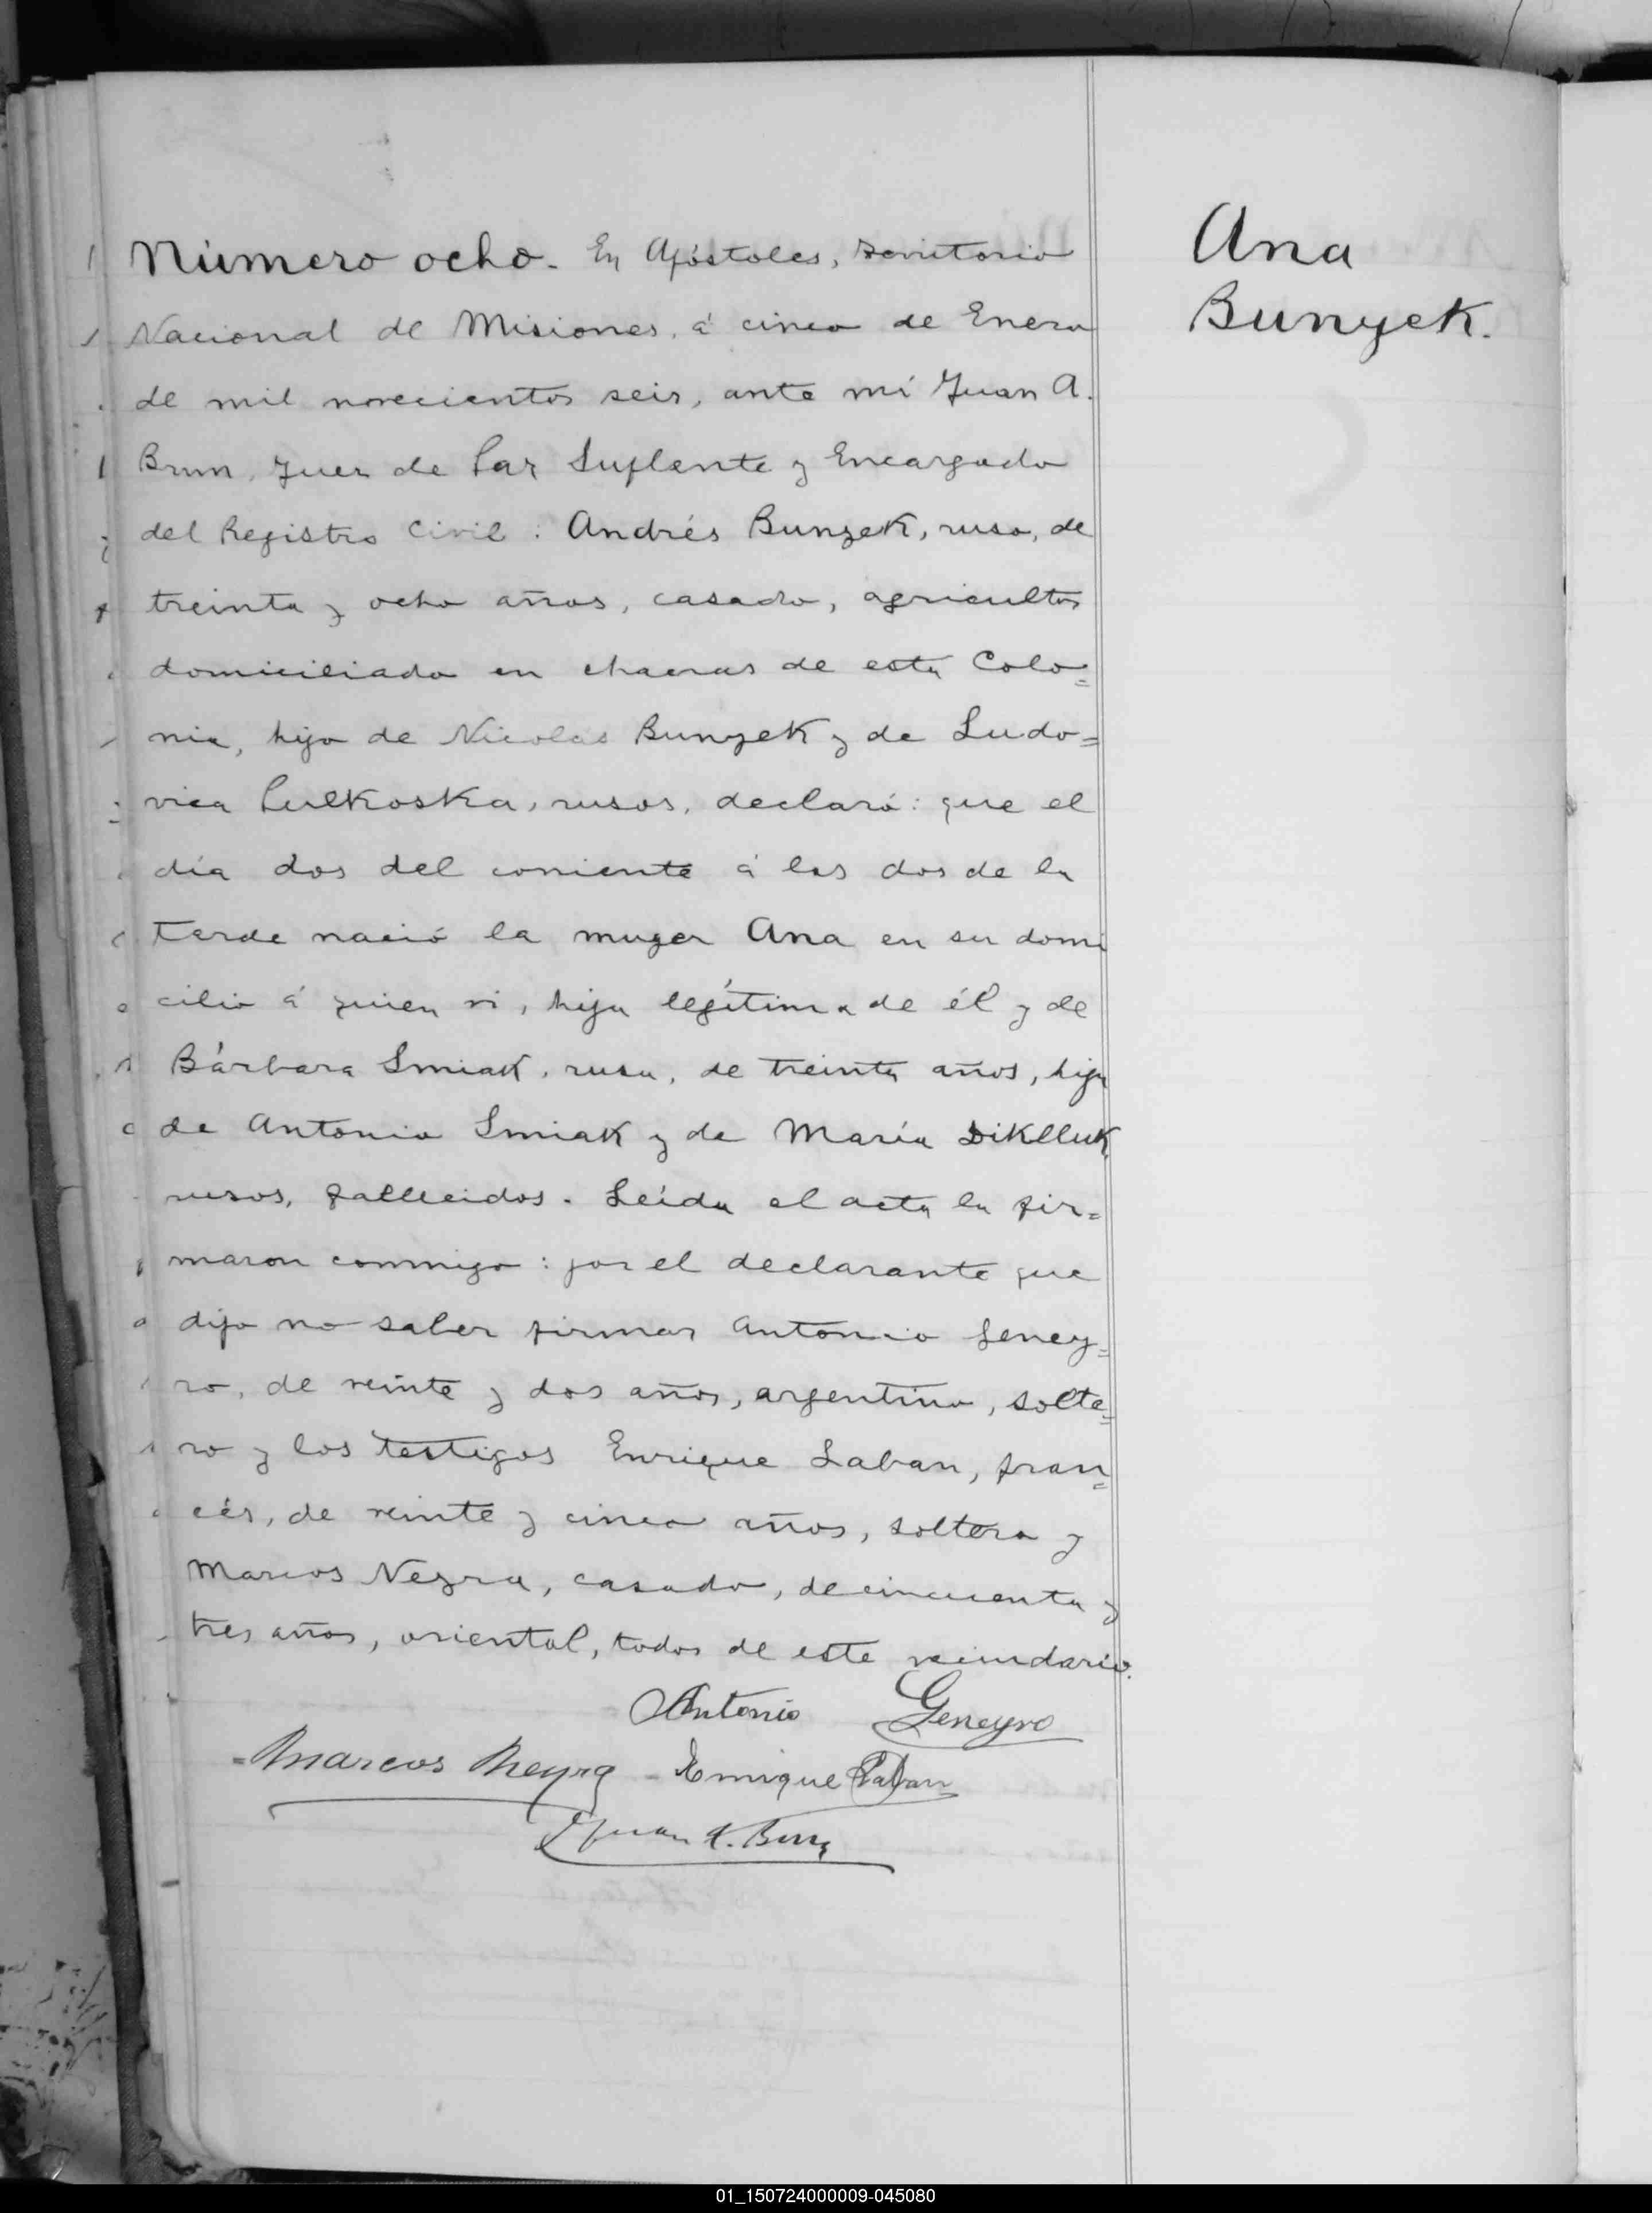 Número ocho. En Apóstoles, Territorio
Nacional de Misiones, á cinco de Enero
de mil novecientos seis, ante mí Juan A.
Brun, Juez de Paz Suplente y Encargado
del Registro Civil: Andrés Bunyek, ruso, de
treinta y ocho años, casado, agricultor
domiciliado en chacras de esta Colo=
nia, hijo de Nicolás Bunyek y de Ludo=
vica Pulkoska, rusos, declaró: que el
día dos del corriente á las dos de la
tarde nació la muger Ana en su domi
cilio á quien vi, hija legítima de él y de
Bárbara Smiak, rusa, de treinta años, hija
de Antonio Smiak y de María Diklluk
rusos, fallecidos. Leída el acta la fir=
maron conmigo: por el declarante que
dijo no saber firmar Antonio Geney=
ro, de veinte y dos años, argentino, solte=
ro y los testigos Enrique Laban, fran=
cés, de veinte y cinco años, soltero y
Marcos Neyra, casado, de cincuenta y
tres años, oriental, todos de este vecindario.
Antonio Geneyro
Marcos Neyra - Enrique Laban
Juan A. Brun
Ana
Bunyek.
01_150724000009-045080